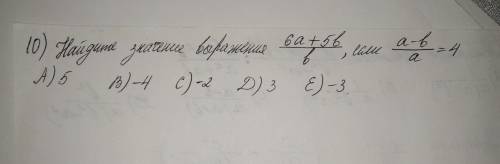 10) Найдите значение выражения (6a+5b)/b, если (a-b)/a=4
A) 5 B) -4 C) -2 D) 3 E) -3